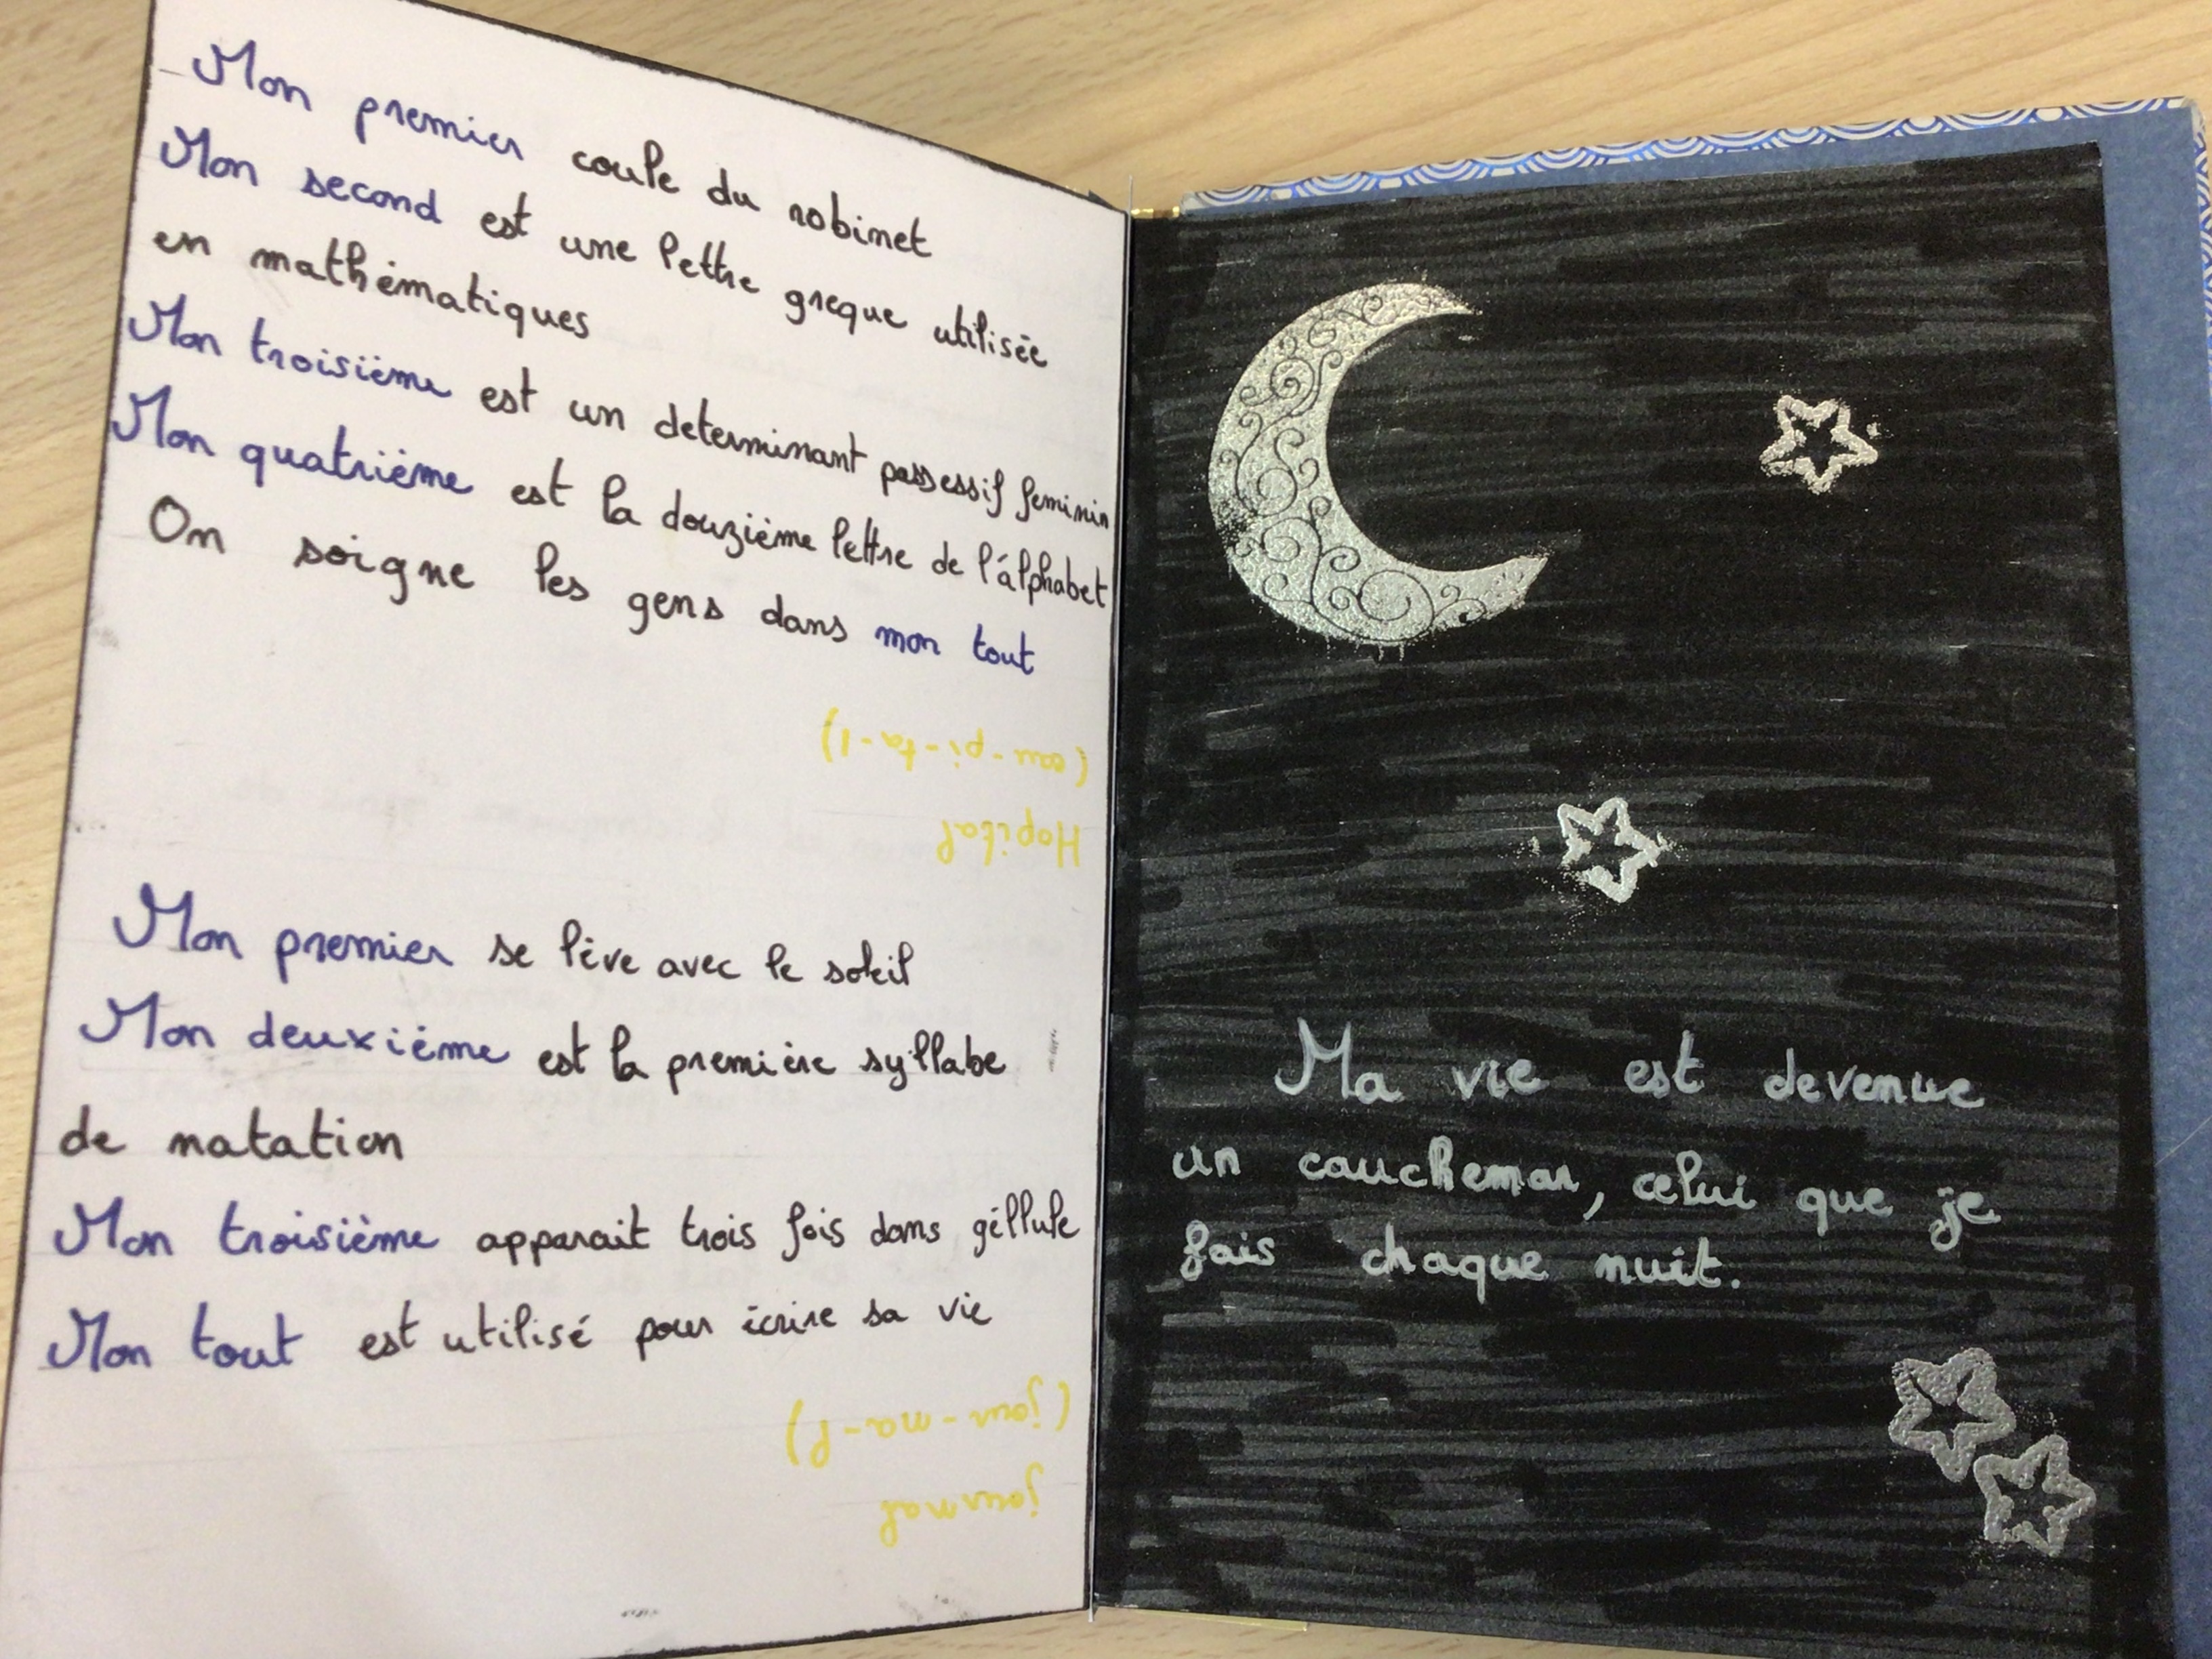 Mon premier coule du robinet
Mon second est une lettre greque utilisée
en mathématiques
Mon troisième est un determinant possessif feminin
Mon quatrième est la douzième lettre de l'alphabet
On soigne les gens dans mon tout
(eau-pi-ta-l)
Hopital
Mon premier se lève avec le soleil
Mon deuxième est la première syllabe
de natation
Mon troisième apparait trois fois dans géllule
Mon tout est utilisé pour écrire sa vie
(jour-na-l)
journal
Ma vie est devenue
un cauchemar, celui que je
fais chaque nuit.